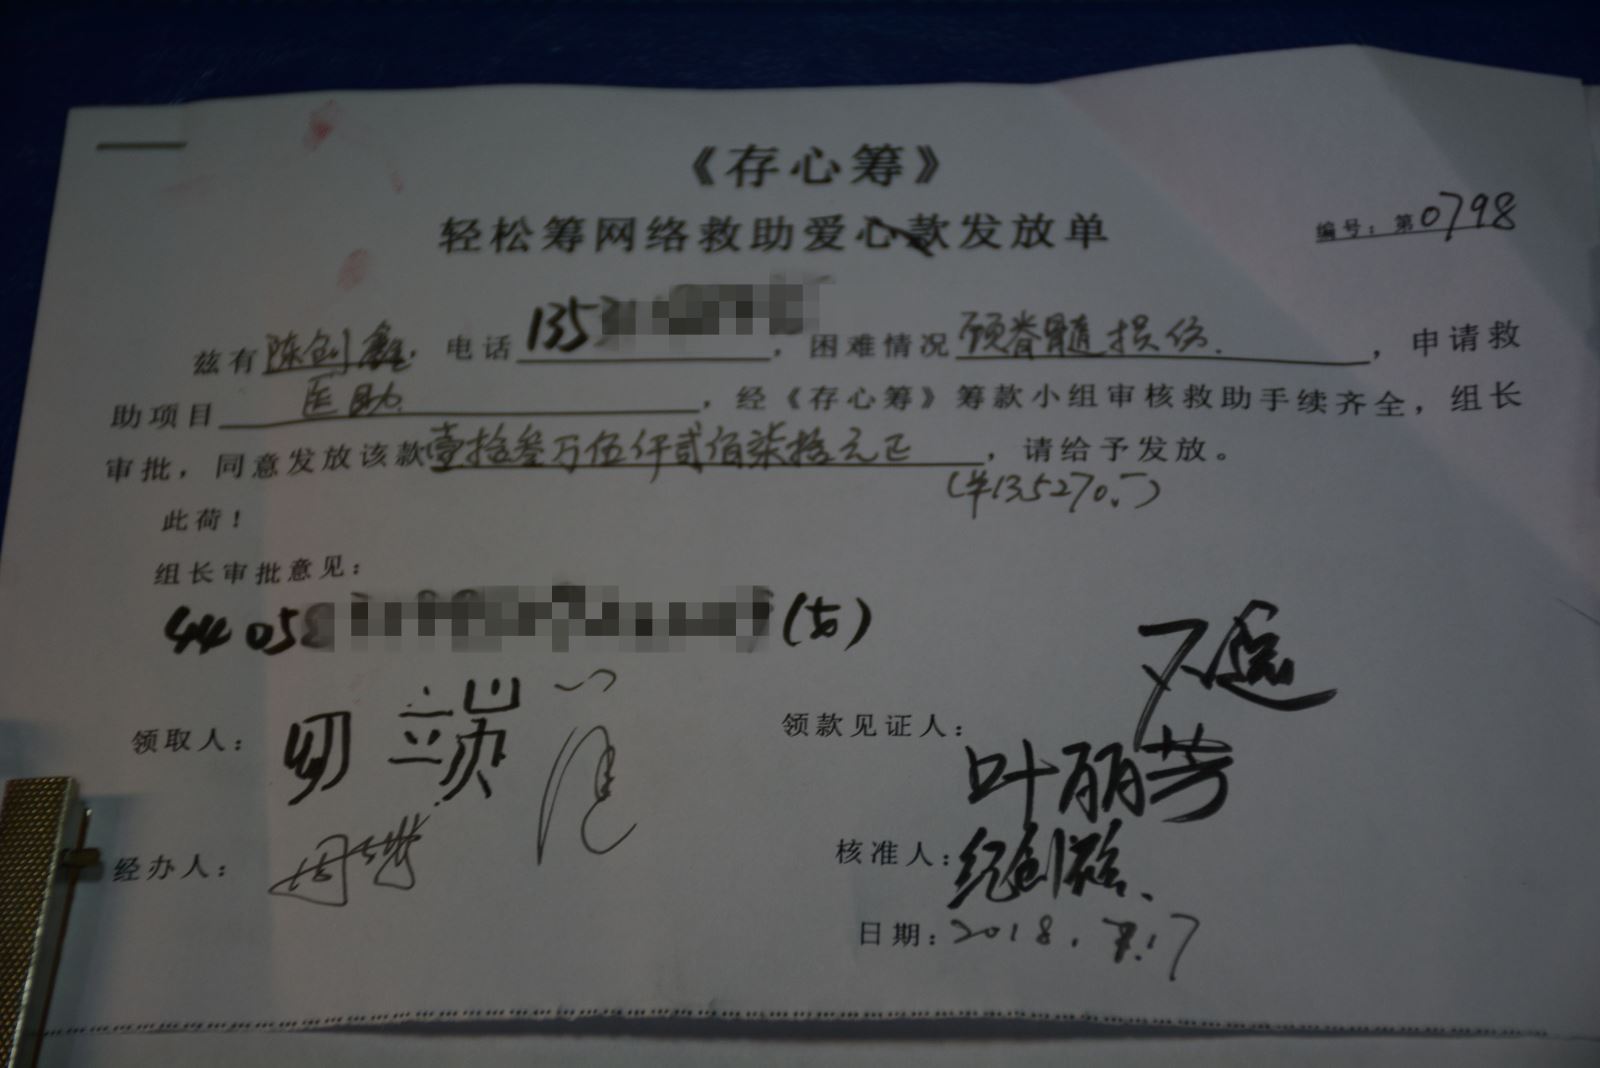 《存心筹》
轻松筹网络救助爱心款发放单
编号：第0798
兹有陈创鑫，电话1353，困难情况颈脊髓损伤.，申请救
助项目医助，经《存心筹》筹款小组审核救助手续齐全，组长
审批，同意发放该款壹拾叁万伍仟贰佰柒拾元正，请给予发放。
(¥135270.-)
此荷！
组长审批意见：
4405
领取人：
领款见证人：
叶丽芳
经办人：
核准人：纪创
日期：2018.